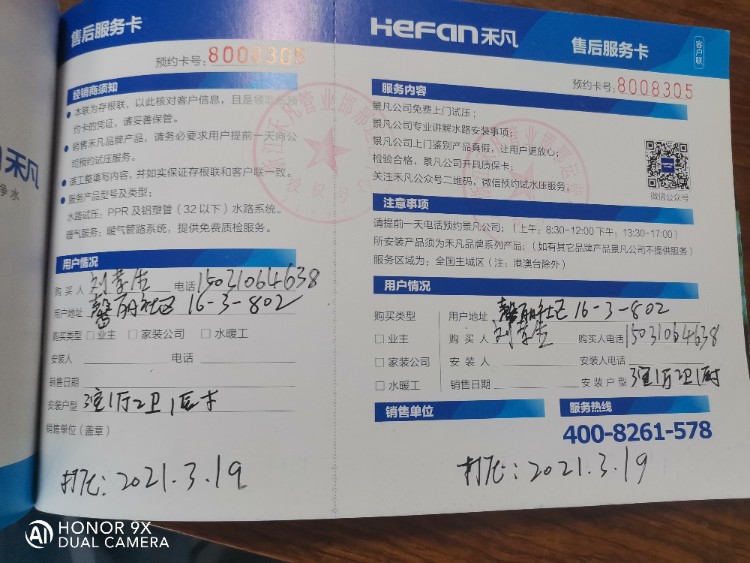 售后服务卡
预约卡号: 8008305
经销商须知
本联为存根联，以此核对客户信息，且是
约卡的凭证，请妥善保管。
销售禾凡品牌产品，请务必要求用户提前一天向公
司预约试压服务。
请工整填写内容，并如实保证存根联和客户联一致。
服务产品型号及类型：
水路试压：PPR及铝塑管（32以下）水路系统。
暖气服务：暖气管路系统，提供免费质检服务。
用户情况
购买人 电话 15031064638
用户地址 馨丽社区 16-3-802
购买类型 □业主 □家装公司 □水暖工
安装人 电话
销售日期
安装户型 3室1厅2卫1
销售单位（盖章）
打压：2021.3.19
HeFan禾凡
售后服务卡
客户联
预约卡号: 8008305
服务内容
景凡公司免费上门试压；
景凡公司专业讲解水路安装事项；
景凡公司上门鉴别产品真假，让用户更放心；
检验合格，景凡公司开具质保卡；
关注禾凡公众号二维码，微信预约试水压服务。
微信公众号
注意事项
请提前一天电话预约景凡公司；（上午：8:30-12:00 下午：13:30-17:00）
所安装产品须为禾凡品牌系列产品；（如有其它品牌产品景凡公司不提供服务）
服务区域为：全国主城区（注：港澳台除外）
用户情况
购买类型 用户地址 馨丽社区 16-3-802
□业主 购买人 购买人电话 15031064638
□家装公司 安装人 安装人电话
□水暖工 销售日期 安装户型 3室1厅2卫1厨
销售单位
服务热线
400-8261-578
打压：2021.3.19
禾凡
净水
HONOR 9X
DUAL CAMERA